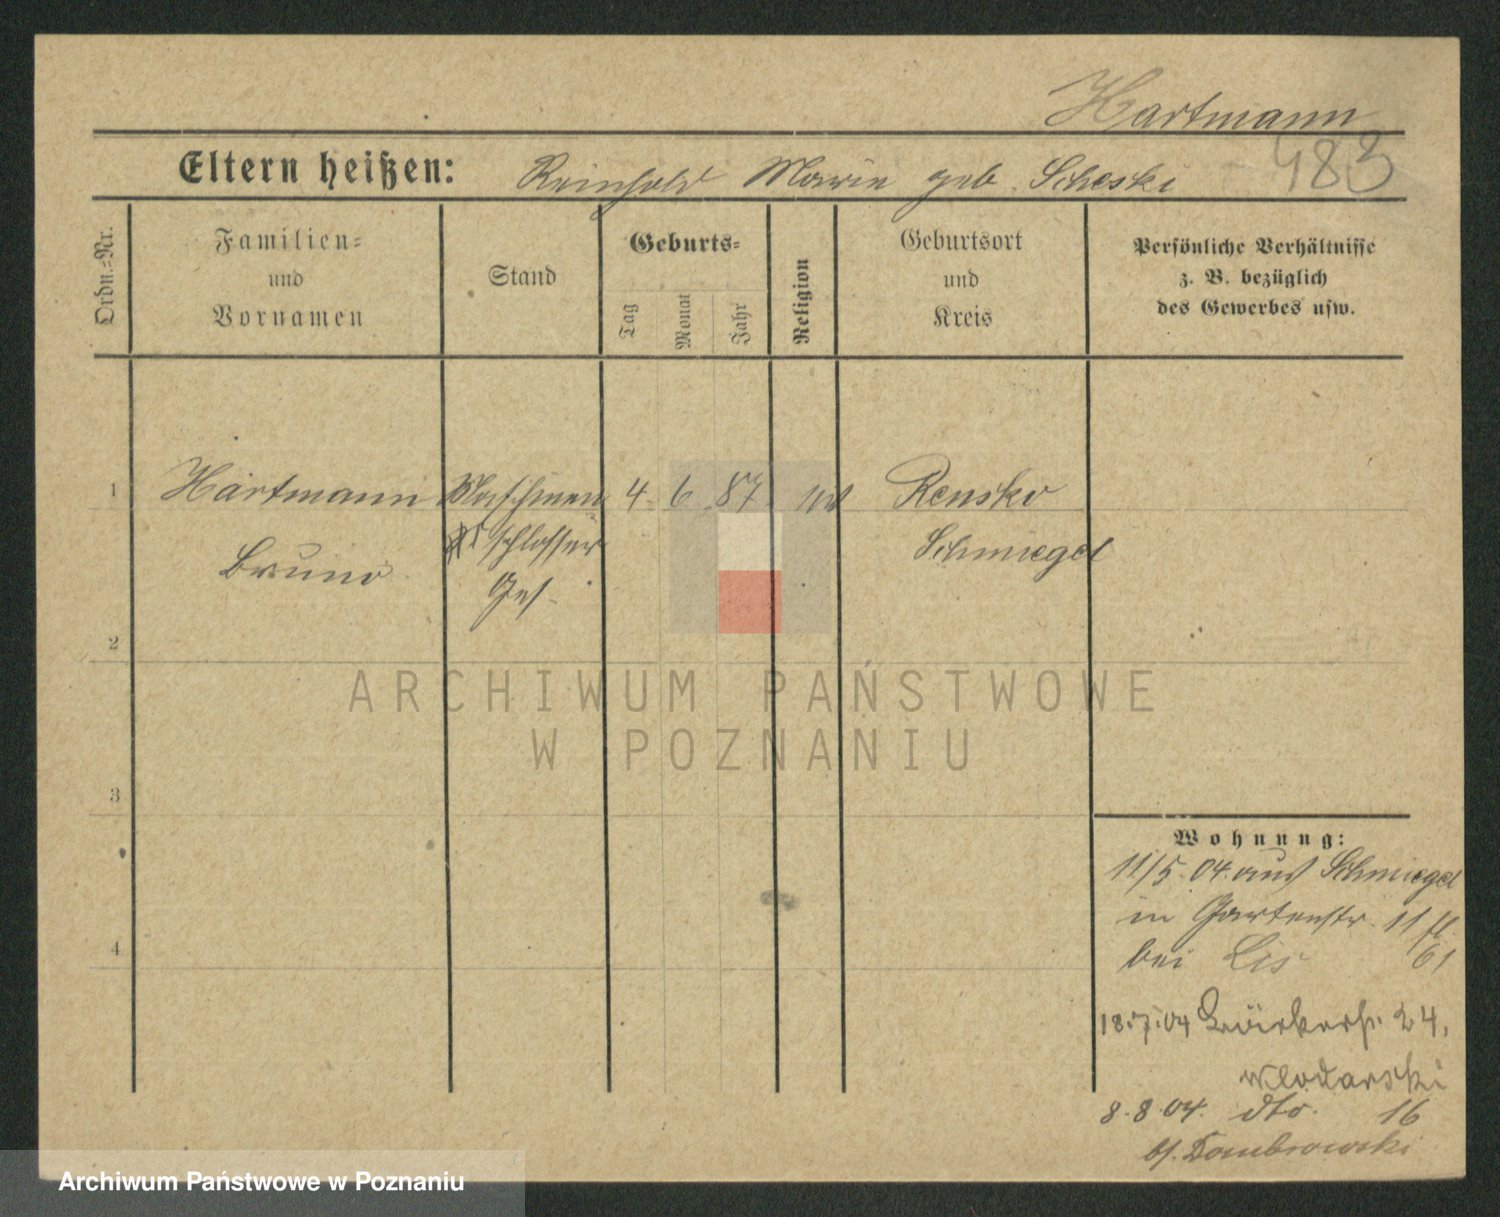 Hartmann
Eltern heißen: Reinhold Marie geb. Scheski 483
Ordn.-Nr.
Familien-
und
Vornamen
Stand
Geburts-
Tag
Monat
Jahr
Religion
Geburtsort
und
Kreis
Persönliche Verhältnisse
z. B. bezüglich
des Gewerbes usw.
1 Hartmann Maschinen 4. 6. 87. Rensko
Bruno schlosser Schmiegel
Ges.
2
3
4
Wohnung:
11/5. 04. aus Schmiegel
in Gartenstr. 11
bei Lis 61
18.7.04 24.
Wlodarski
8.8.04. dto. 16
b/. Dombrowski
ARCHIWUM PAŃSTWOWE
W POZNANIU
Archiwum Państwowe w Poznaniu